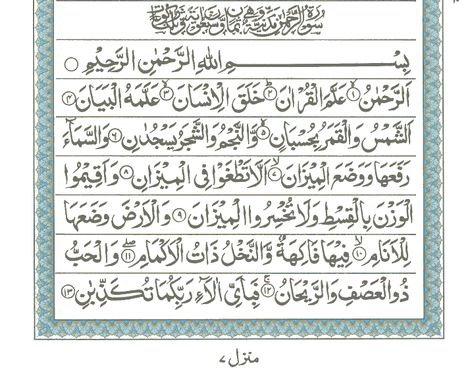 سورة الرحمن مدنية وهي ثمان وسبعون آية وثلث ركوعات
بِسْمِ اللهِ الرَّحْمٰنِ الرَّحِيْمِ ○
اَلرَّحْمٰنُ ۙ۱ عَلَّمَ الْقُرْاٰنَ ؕ۲ خَلَقَ الْاِنْسَانَ ۙ۳ عَلَّمَهُ الْبَيَانَ ۴
اَلشَّمْسُ وَالْقَمَرُ بِحُسْبَانٍ ۪۵ وَّالنَّجْمُ وَالشَّجَرُ يَسْجُدٰنِ ۶ وَالسَّمَآءَ
رَفَعَهَا وَوَضَعَ الْمِيْزَانَ ۙ۷ اَلَّا تَطْغَوْا فِى الْمِيْزَانِ ۸ وَاَقِيْمُوا
الْوَزْنَ بِالْقِسْطِ وَلَا تُخْسِرُوا الْمِيْزَانَ ۹ وَالْاَرْضَ وَضَعَهَا
لِلْاَنَامِ ۙ۱۰ فِيْهَا فَاكِهَةٌ ۪ۙ وَّالنَّخْلُ ذَاتُ الْاَكْمَامِ ۖ۱۱ وَالْحَبُّ
ذُو الْعَصْفِ وَالرَّيْحَانُ ۚ۱۲ فَبِاَىِّ اٰلَآءِ رَبِّكُمَا تُكَذِّبٰنِ ۱۳
منزل ۷